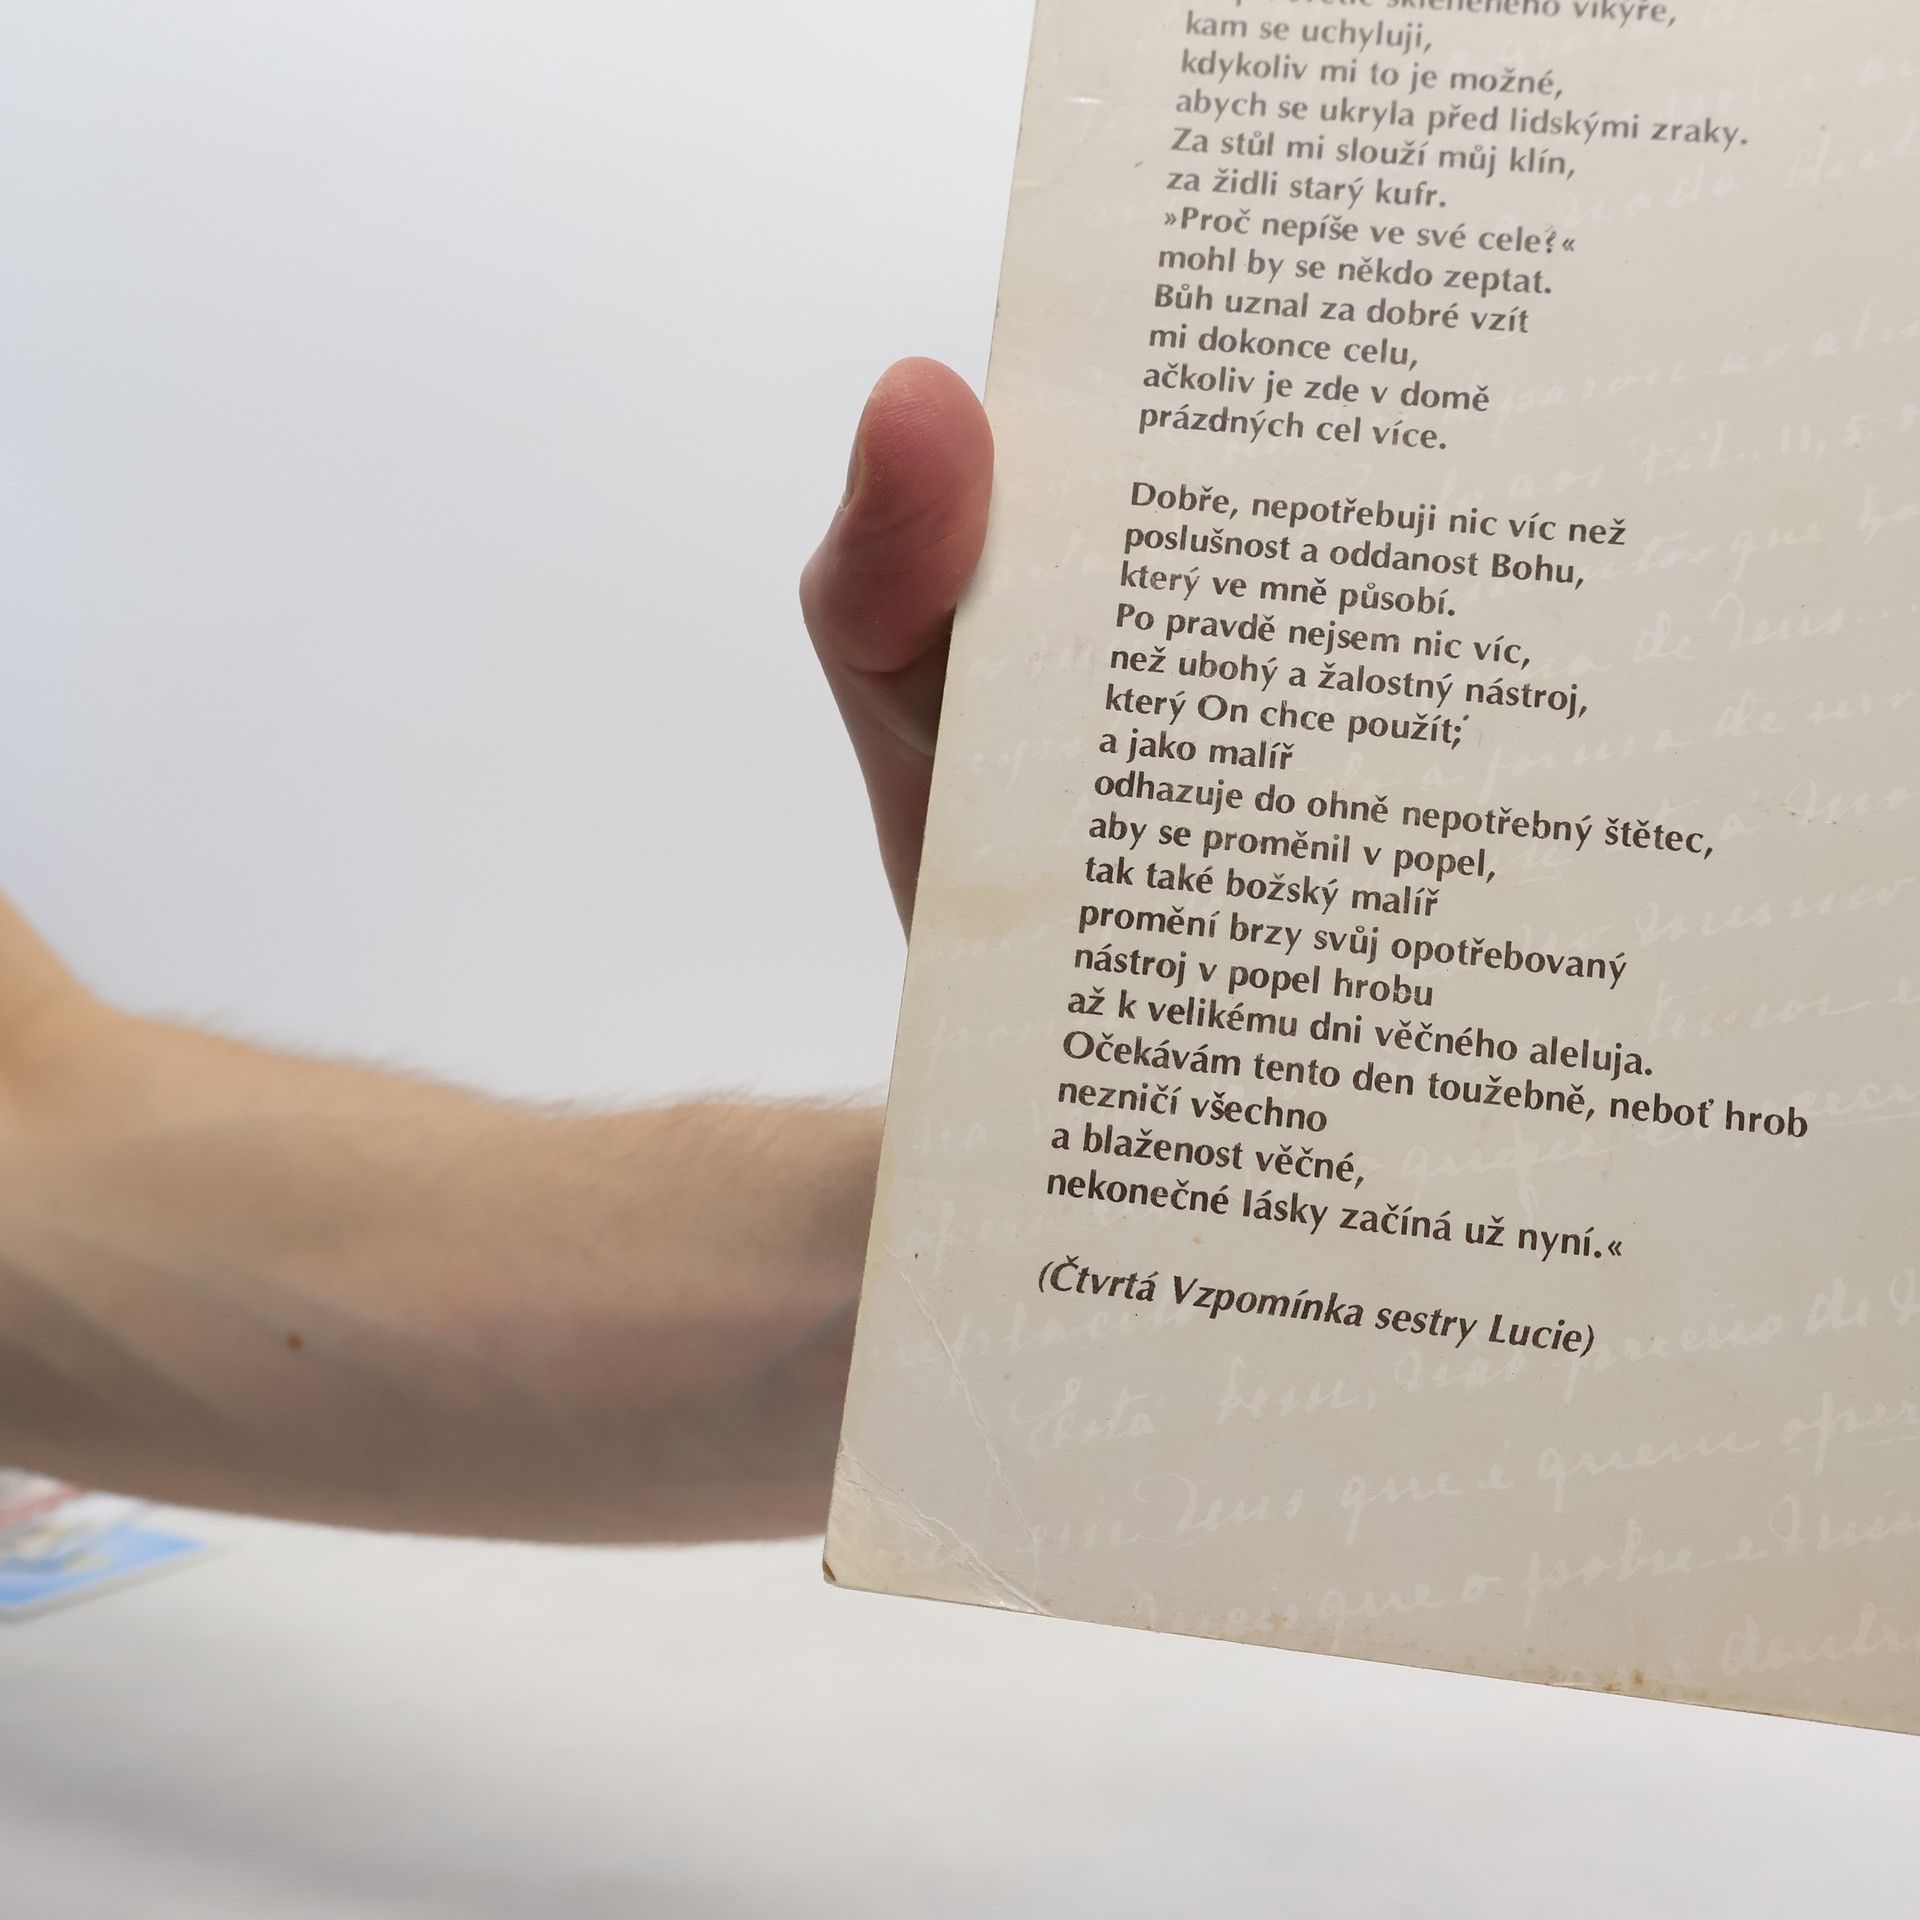 skleněného vikýře,
kam se uchyluji,
kdykoliv mi to je možné,
abych se ukryla před lidskými zraky.
Za stůl mi slouží můj klín,
za židli starý kufr.
»Proč nepíše ve své cele?«
mohl by se někdo zeptat.
Bůh uznal za dobré vzít
mi dokonce celu,
ačkoliv je zde v domě
prázdných cel více.
Dobře, nepotřebuji nic víc než
poslušnost a oddanost Bohu,
který ve mně působí.
Po pravdě nejsem nic víc,
než ubohý a žalostný nástroj,
který On chce použít;
a jako malíř
odhazuje do ohně nepotřebný štětec,
aby se proměnil v popel,
tak také božský malíř
promění brzy svůj opotřebovaný
nástroj v popel hrobu
až k velikému dni věčného aleluja.
Očekávám tento den toužebně, neboť hrob
nezničí všechno
a blaženost věčné,
nekonečné lásky začíná už nyní.«
(Čtvrtá Vzpomínka sestry Lucie)